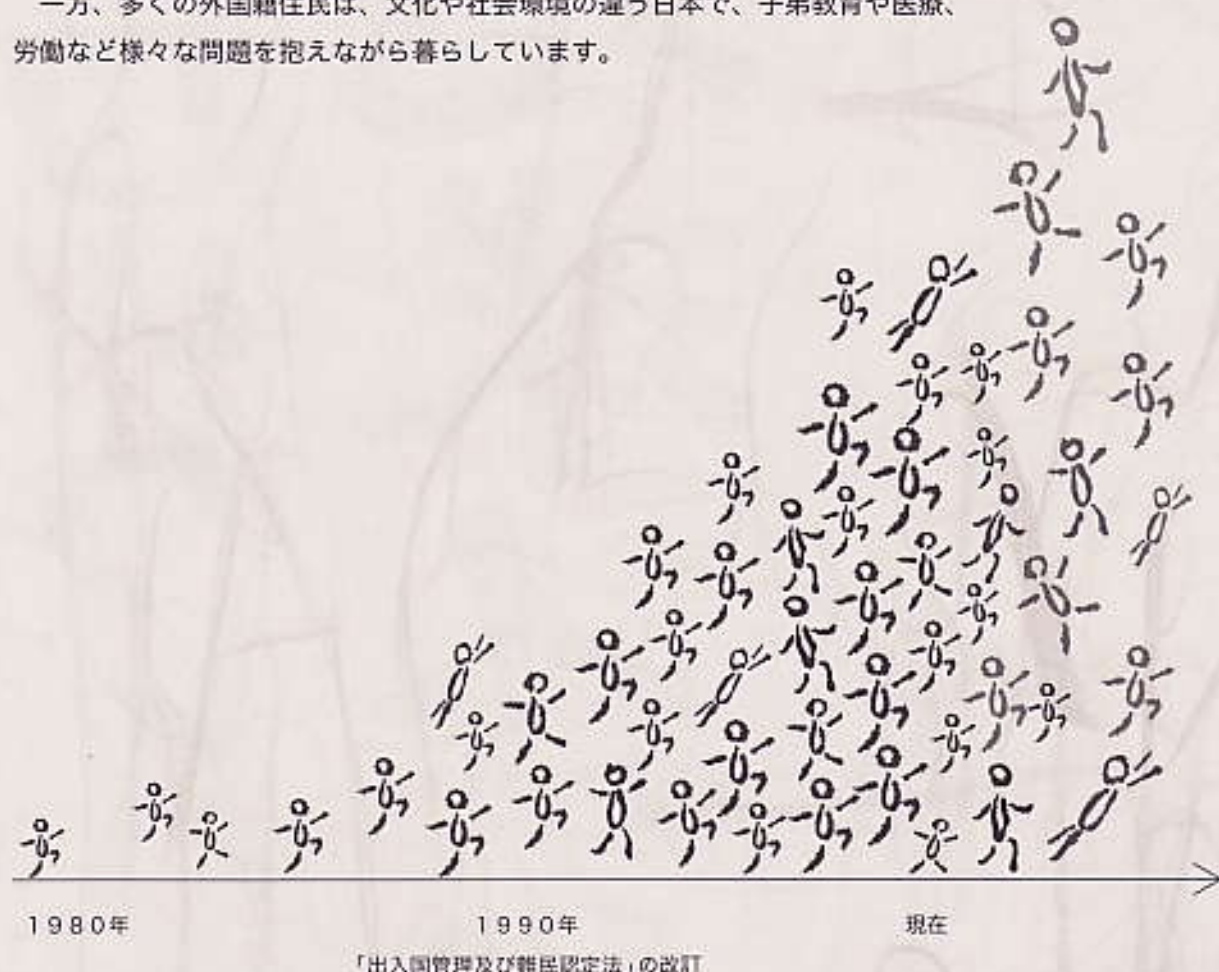 一方、多くの外国籍住民は、文化や社会環境の違う日本で、子弟教育や医療、
労働など様々な問題を抱えながら暮らしています。
1980年 1990年 現在
「出入国管理及び難民認定法」の改訂